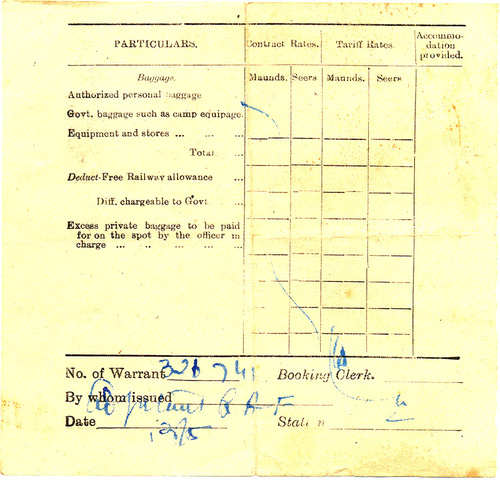 PARTICULARS. Contract Rates. Tariff Rates. Accommo-dation provided.
Baggage. Maunds. Seers Maunds. Seers
Authorized personal baggage
Govt. baggage such as camp equipage.
Equipment and stores ... ... ...
Total ...
Deduct-Free Railway allowance ...
Diff. chargeable to Govt ...
Excess private baggage to be paid
for on the spot by the officer in
charge ... .. ... ... ...
No. of Warrant 326741 Booking Clerk.
By whom issued Adjutant R A F
Date Station